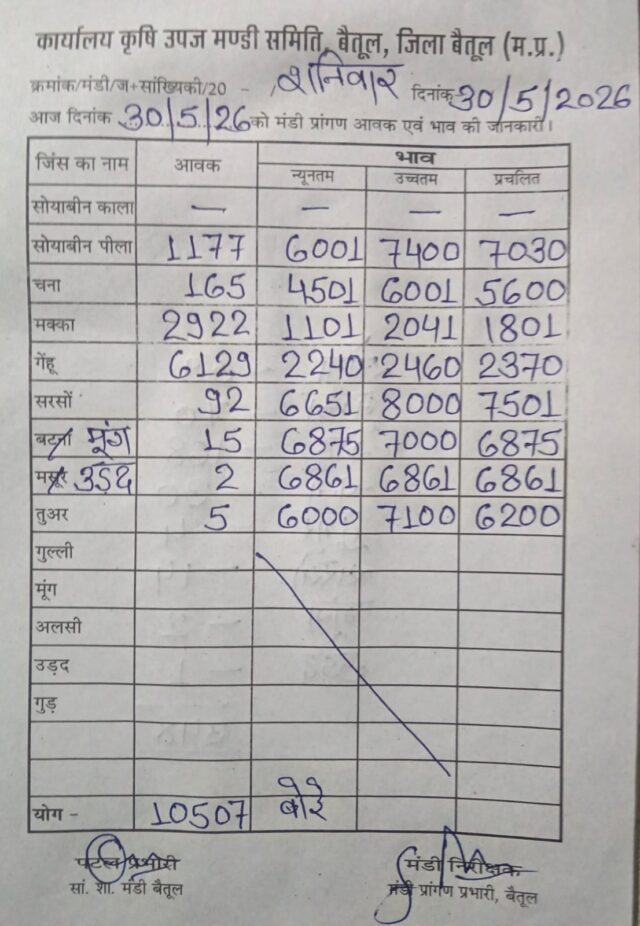 कार्यालय कृषि उपज मण्डी समिति, बैतूल, जिला बैतूल (म.प्र.)
क्रमांक/मंडी/ज+सांख्यिकी/20 - शनिवार दिनांक 30/5/2026
आज दिनांक 30/5/26 को मंडी प्रांगण आवक एवं भाव की जानकारी।
जिंस का नाम आवक भाव
न्यूनतम उच्चतम प्रचलित
सोयाबीन काला — — — —
सोयाबीन पीला 1177 6001 7400 7030
चना 165 4501 6001 5600
मक्का 2922 1101 2041 1801
गेंहू 6129 2240 2460 2370
सरसों 92 6651 8000 7501
बटना मूंग 15 6875 7000 6875
मसूर उड़द 2 6861 6861 6861
तुअर 5 6000 7100 6200
गुल्ली
मूंग
अलसी
उड़द
गुड़
योग - 10507 बोरे
प्रभारी मंडी निरीक्षक
सां. शा. मंडी बैतूल मंडी प्रांगण प्रभारी, बैतूल